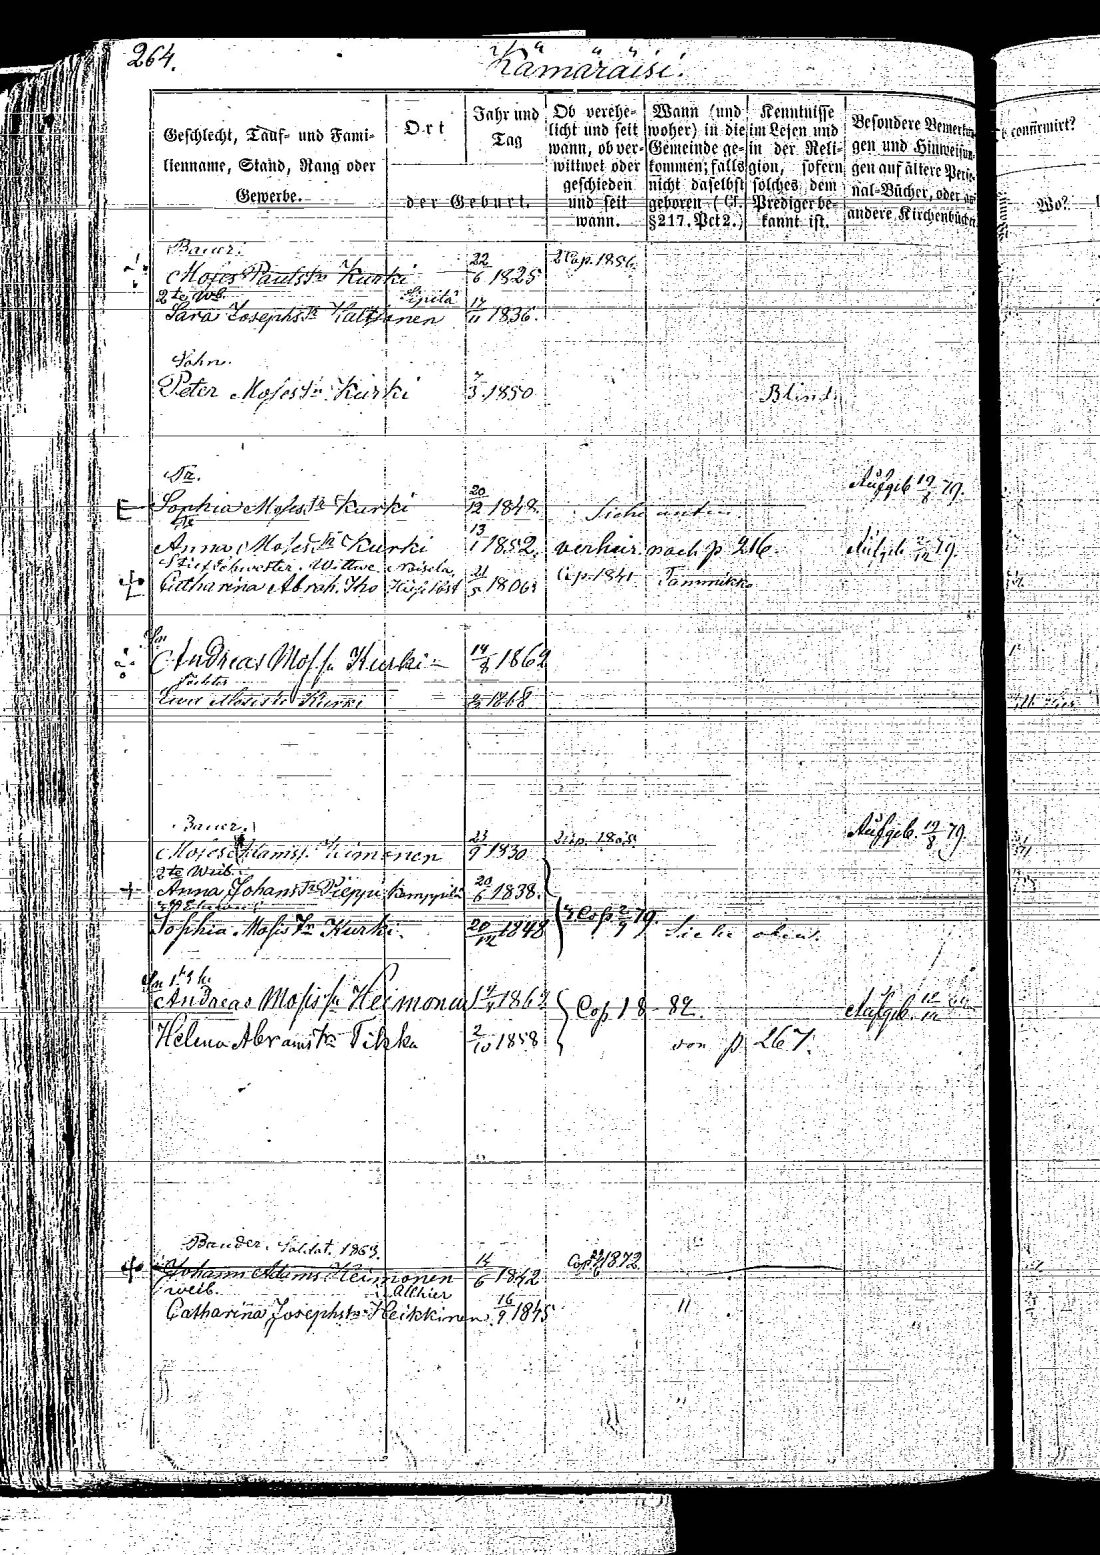 264.
Kämäräisi.
Geschlecht, Tauf- und Fami-
lienname, Stand, Rang oder
Gewerbe.
Ort
Jahr und
Tag
der Geburt.
Ob verehe-
licht und seit
wann, ob ver-
wittwet oder
geschieden
und seit
wann.
Wann (und
woher) in die
Gemeinde ge-
kommen; falls
nicht daselbst
geboren (Cf.
§217. Pct 2.)
Kenntnisse
im Lesen und
in der Reli-
gion, sofern
solches dem
Prediger be-
kannt ist.
Besondere Bemerkun-
gen und Hinweisun-
gen auf ältere Perso-
nal-Bücher, oder
andere Kirchenbücher
confirmirt?
Wo?
Bauer.
Moses Paulss. Kurki 22/6 1825 2 Cop. 1856.
2te Wb.
Sara Josephstr. 17/11 1836.
Sohn.
Peter Mosess. Kurki 7/3 1850 Blind.
Tr.
Sophia Moses Tr. Kurki 20/12 1848 Siehe unten Aufgeb. 19/8 79.
Anna Moses Tr. Kurki 13/1 1852. verheir. nach p 216. Aufgeb. 2/12 79.
Stiefschwester. Wittwe
Catharina Abrah. 21/5 1806 Cop. 1841. Tammikko
Sn
Andreas Mos. Sn Kurki 14/8 1862
Tochter
Kurki 1868
Bauer.
Moses Adams. Heimonen 23/9 1830 Aufgeb. 19/8 79.
2te Weib.
Anna Johans Tr Pieppi Kamppila 20/6 1838.
Sophia Moses Tr Kurki. 20/12 1848 3 Cop 2/9 79. Siehe oben.
Andreas Moses Sn Heimonen 1862 Cop 18 82. Aufgeb.
Helena Abrams Tr Tikka 2/10 1858 von p 267.
Bruder. Soldat. 1863.
Johann Adams Heimonen 14/6 1842 Cop. 1872
Weib. Allhier
Catharina Josephstr. Heikkinen. 16/9 1845 "
"